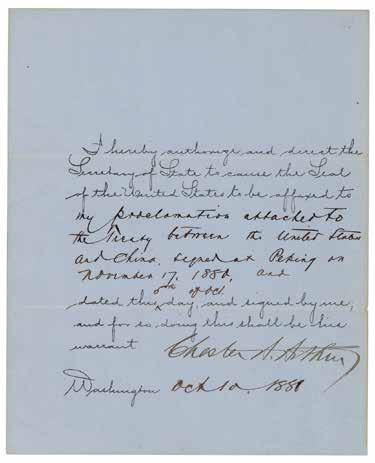 I hereby authorize and direct the
Secretary of State to cause the Seal
of the United States to be affixed to
my proclamation attached to
the Treaty between the United States
and China, signed at Peking on
November 17, 1880, and
5th of Oct.
dated this day, and signed by me;
and for so doing this shall be his
warrant
Chester A. Arthur
Washington Oct 10, 1881